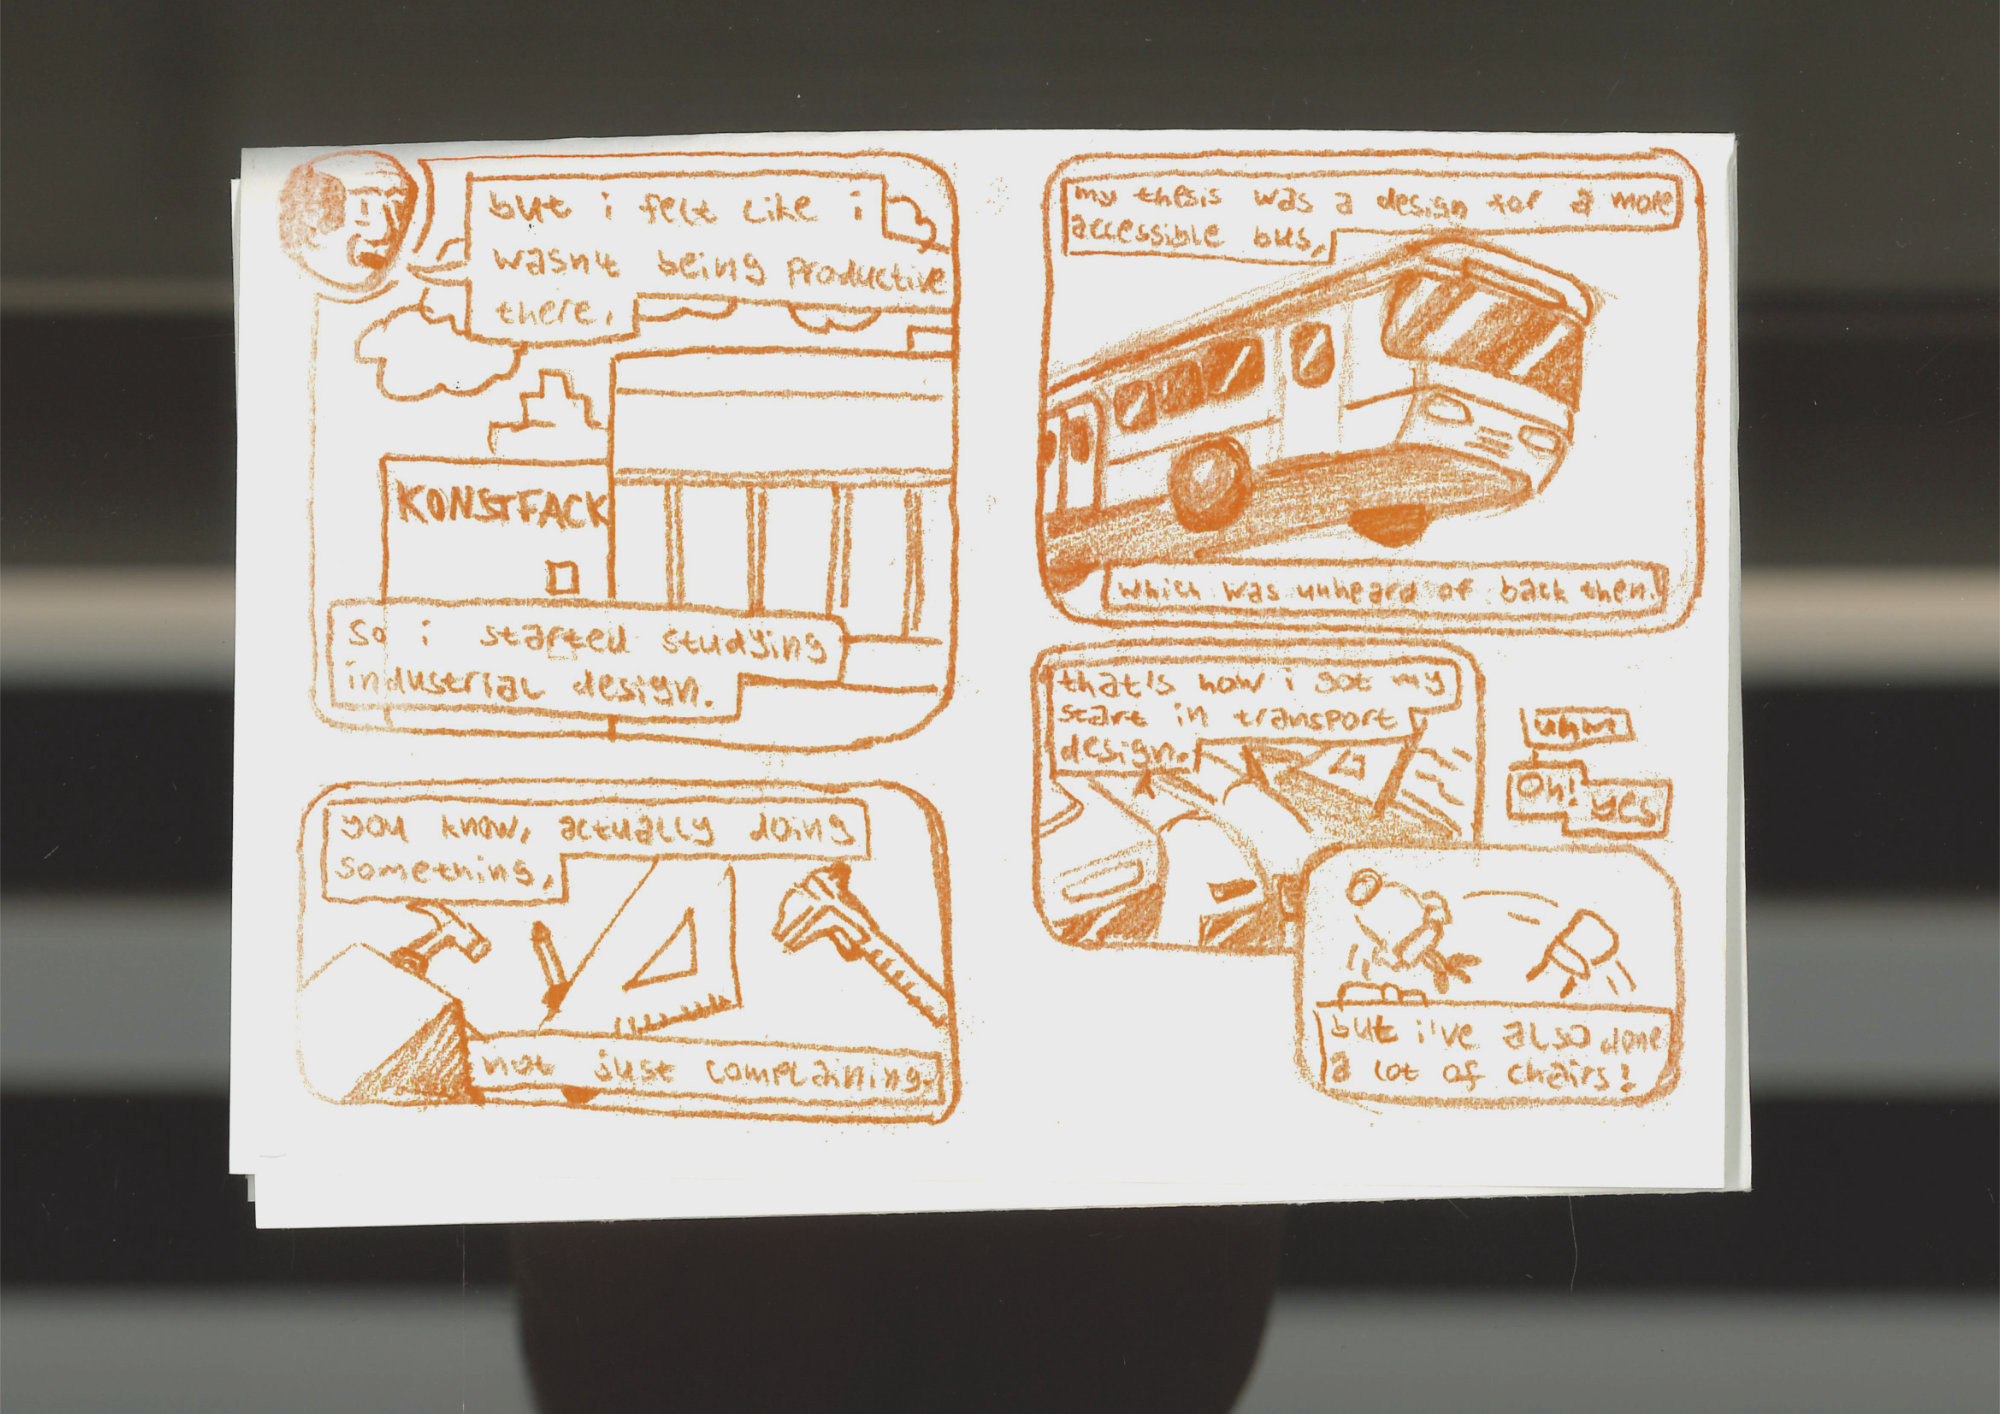 but i felt like i
wasn't being productive
there,
KONSTFACK
so i started studying
industrial design.
you know, actually doing
something,
not just complaining.
my thesis was a design for a more
accessible bus,
which was unheard of back then.
that's how i got my
start in transport
design.
uhm
Oh! yes
but i've also done
a lot of chairs!